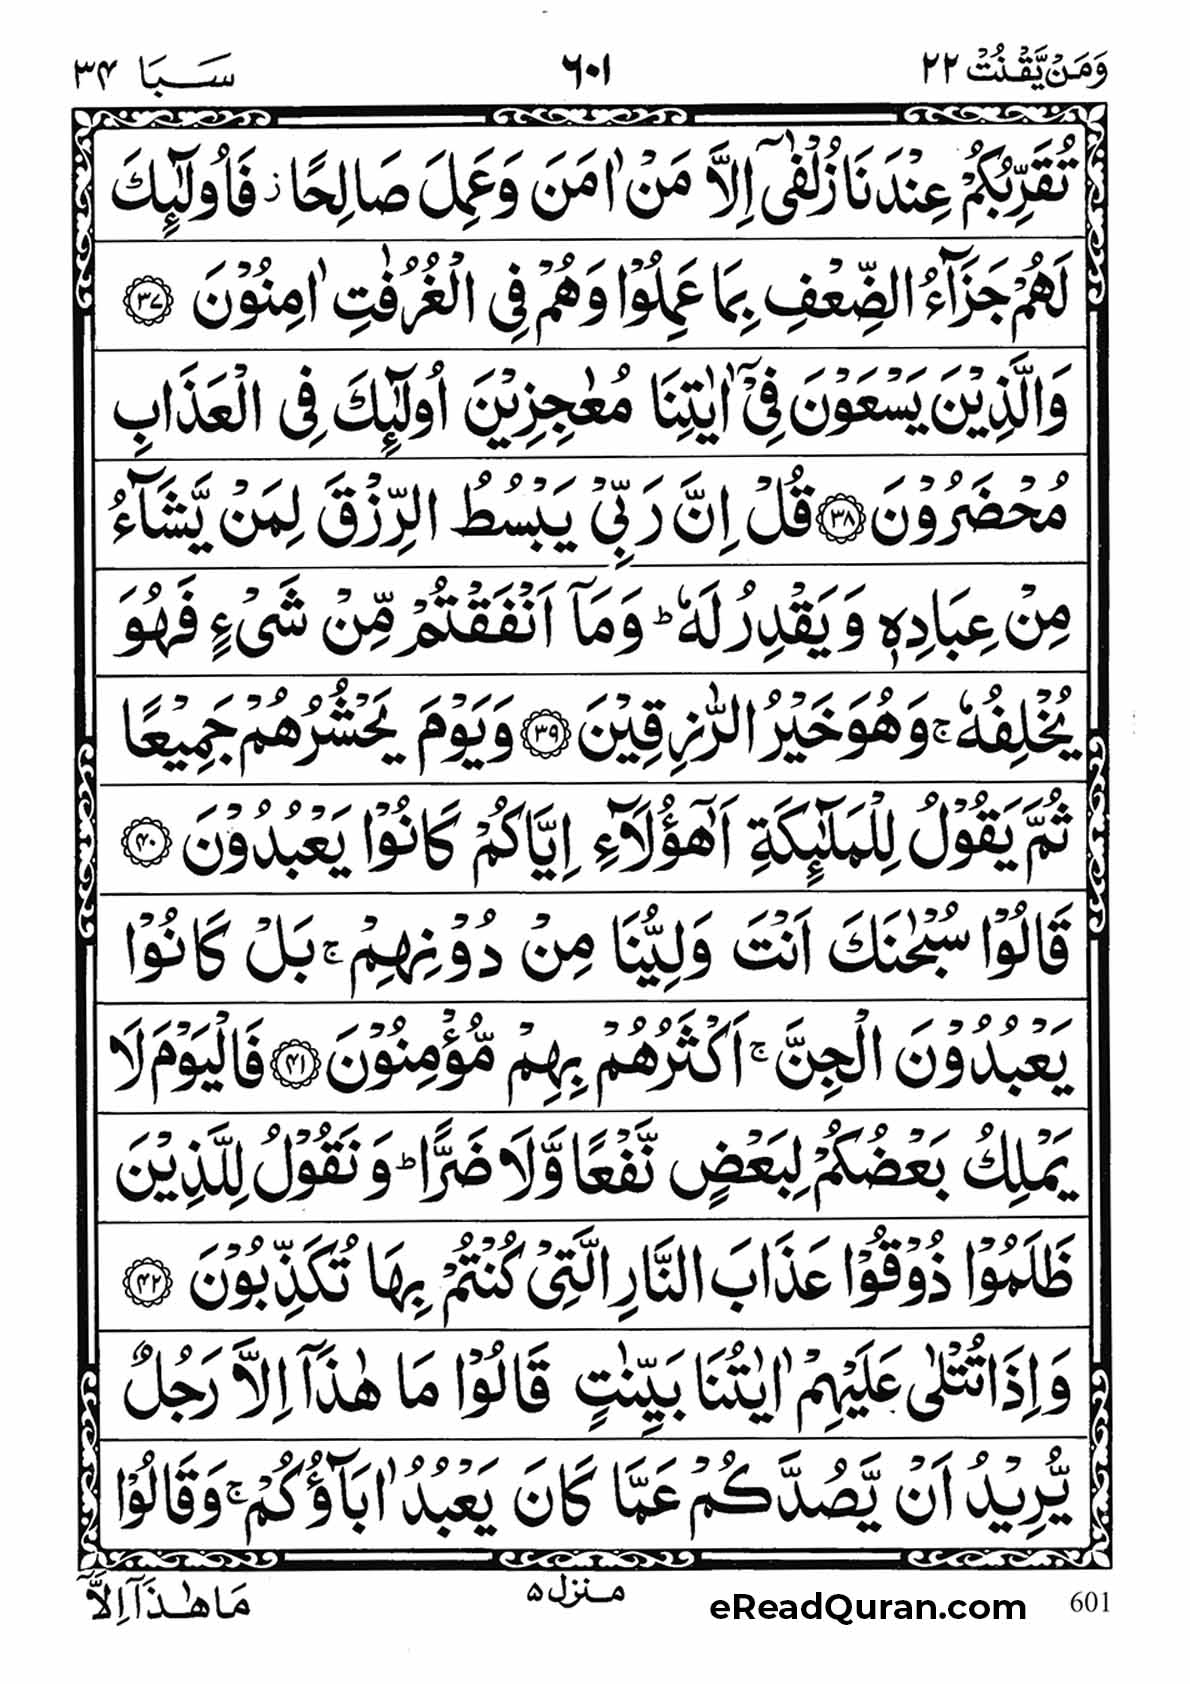 وَمَنْ يَّقْنُتْ ٢٢ ٦٠١ سَــبَا ٣٤
تُقَرِّبُكُمْ عِنْدَنَا زُلْفٰٓى اِلَّا مَنْ اٰمَنَ وَعَمِلَ صَالِحًا ز فَاُولٰٓئِكَ
لَهُمْ جَزَآءُ الضِّعْفِ بِمَا عَمِلُوْا وَهُمْ فِى الْغُرُفٰتِ اٰمِنُوْنَ ٣٧
وَالَّذِيْنَ يَسْعَوْنَ فِىْٓ اٰيٰتِنَا مُعٰجِزِيْنَ اُولٰٓئِكَ فِى الْعَذَابِ
مُحْضَرُوْنَ ٣٨ قُلْ اِنَّ رَبِّىْ يَبْسُطُ الرِّزْقَ لِمَنْ يَّشَآءُ
مِنْ عِبَادِهٖ وَيَقْدِرُ لَهٗ ط وَمَآ اَنْفَقْتُمْ مِّنْ شَىْءٍ فَهُوَ
يُخْلِفُهٗ ج وَهُوَ خَيْرُ الرّٰزِقِيْنَ ٣٩ وَيَوْمَ يَحْشُرُهُمْ جَمِيْعًا
ثُمَّ يَقُوْلُ لِلْمَلٰٓئِكَةِ اَهٰٓؤُلَآءِ اِيَّاكُمْ كَانُوْا يَعْبُدُوْنَ ٤٠
قَالُوْا سُبْحٰنَكَ اَنْتَ وَلِيُّنَا مِنْ دُوْنِهِمْ ج بَلْ كَانُوْا
يَعْبُدُوْنَ الْجِنَّ ج اَكْثَرُهُمْ بِهِمْ مُّؤْمِنُوْنَ ٤١ فَالْيَوْمَ لَا
يَمْلِكُ بَعْضُكُمْ لِبَعْضٍ نَّفْعًا وَّلَا ضَرًّا ط وَنَقُوْلُ لِلَّذِيْنَ
ظَلَمُوْا ذُوْقُوْا عَذَابَ النَّارِ الَّتِىْ كُنْتُمْ بِهَا تُكَذِّبُوْنَ ٤٢
وَاِذَا تُتْلٰى عَلَيْهِمْ اٰيٰتُنَا بَيِّنٰتٍ قَالُوْا مَا هٰذَآ اِلَّا رَجُلٌ
يُّرِيْدُ اَنْ يَّصُدَّكُمْ عَمَّا كَانَ يَعْبُدُ اٰبَآؤُكُمْ ج وَقَالُوْا
مَا هٰذَآ اِلَّآ منزل ٥ eReadQuran.com 601